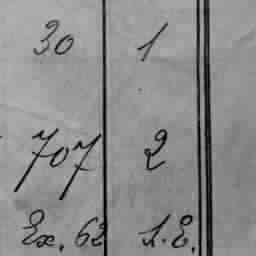 30 1
707 2
Ex. 62 1. E.